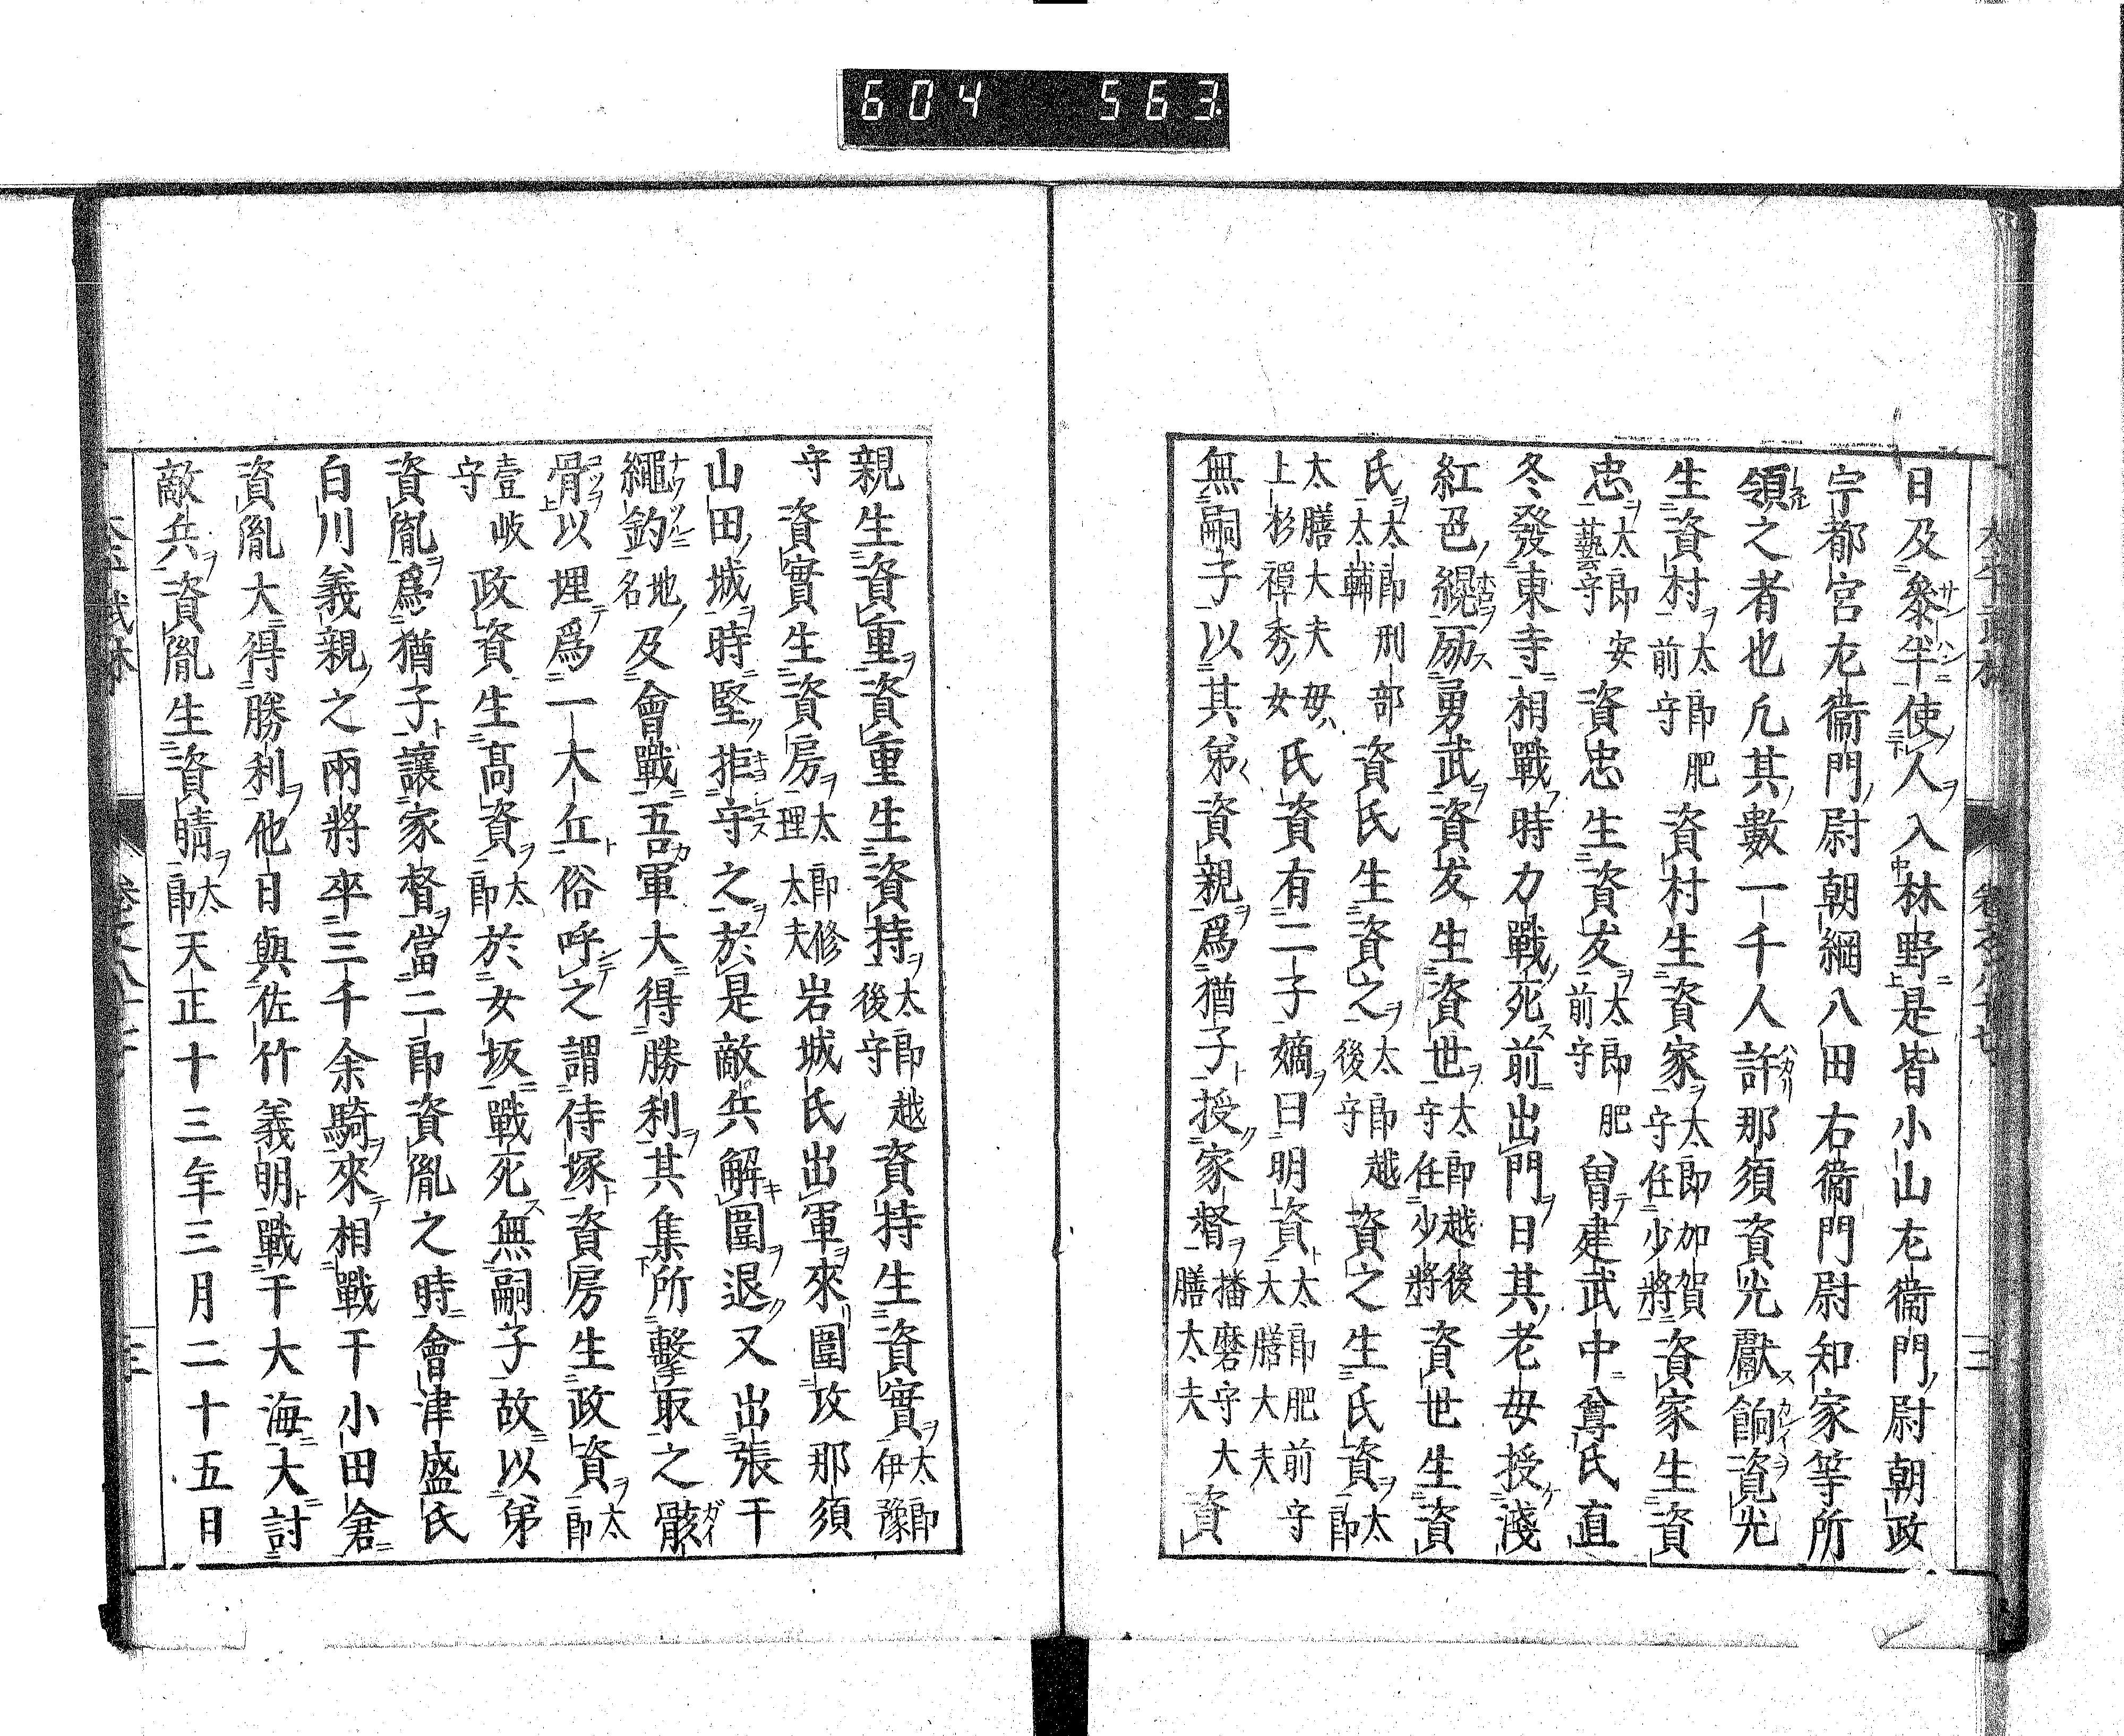 604 563
日及參半使人入林野是皆小山左衞門尉朝政
宇都宮左衞門尉朝綱八田右衞門尉知家等所
領之者也凡其數一千人許那須資光獻餉資光
生資村太郎肥前守資村生資家太郎加賀守任少將資家生資
忠太郎安藝守資忠生資友太郎肥前守曾建武中尊氏直
冬發東寺相戰時力戰死前出門日其老母授淺
紅色縨励勇武資友生資世太郎越後守任少將資世生資
氏太郎刑部太輔資氏生資之太郎越後守資之生氏資太郎
太膳大夫母上杉禪秀女氏資有二子嫡曰明資太郎肥前守大膳大夫
無嗣子以其弟資親爲猶子授家督播磨守大膳太夫資
親生資重資重生資持太郎越後守資持生資實太郎伊豫
守資實生資房太郎修理太夫岩城氏出軍來圍攻那須
山田城時堅拒守之於是敵兵解圍退又出張干
繩釣地名及會戰吾軍大得勝利其集所擊取之骸
骨以埋爲一大丘俗呼之謂侍塚資房生政資太郎
壹岐守政資生高資太郎於女坂戰死無嗣子故以弟
資胤爲猶子讓家督當二郎資胤之時會津盛氏
白川義親之兩將卒三千余騎來相戰干小田倉
資胤大得勝利他日與佐竹義明戰干大海大討
敵兵資胤生資晴太郎天正十三年三月二十五日